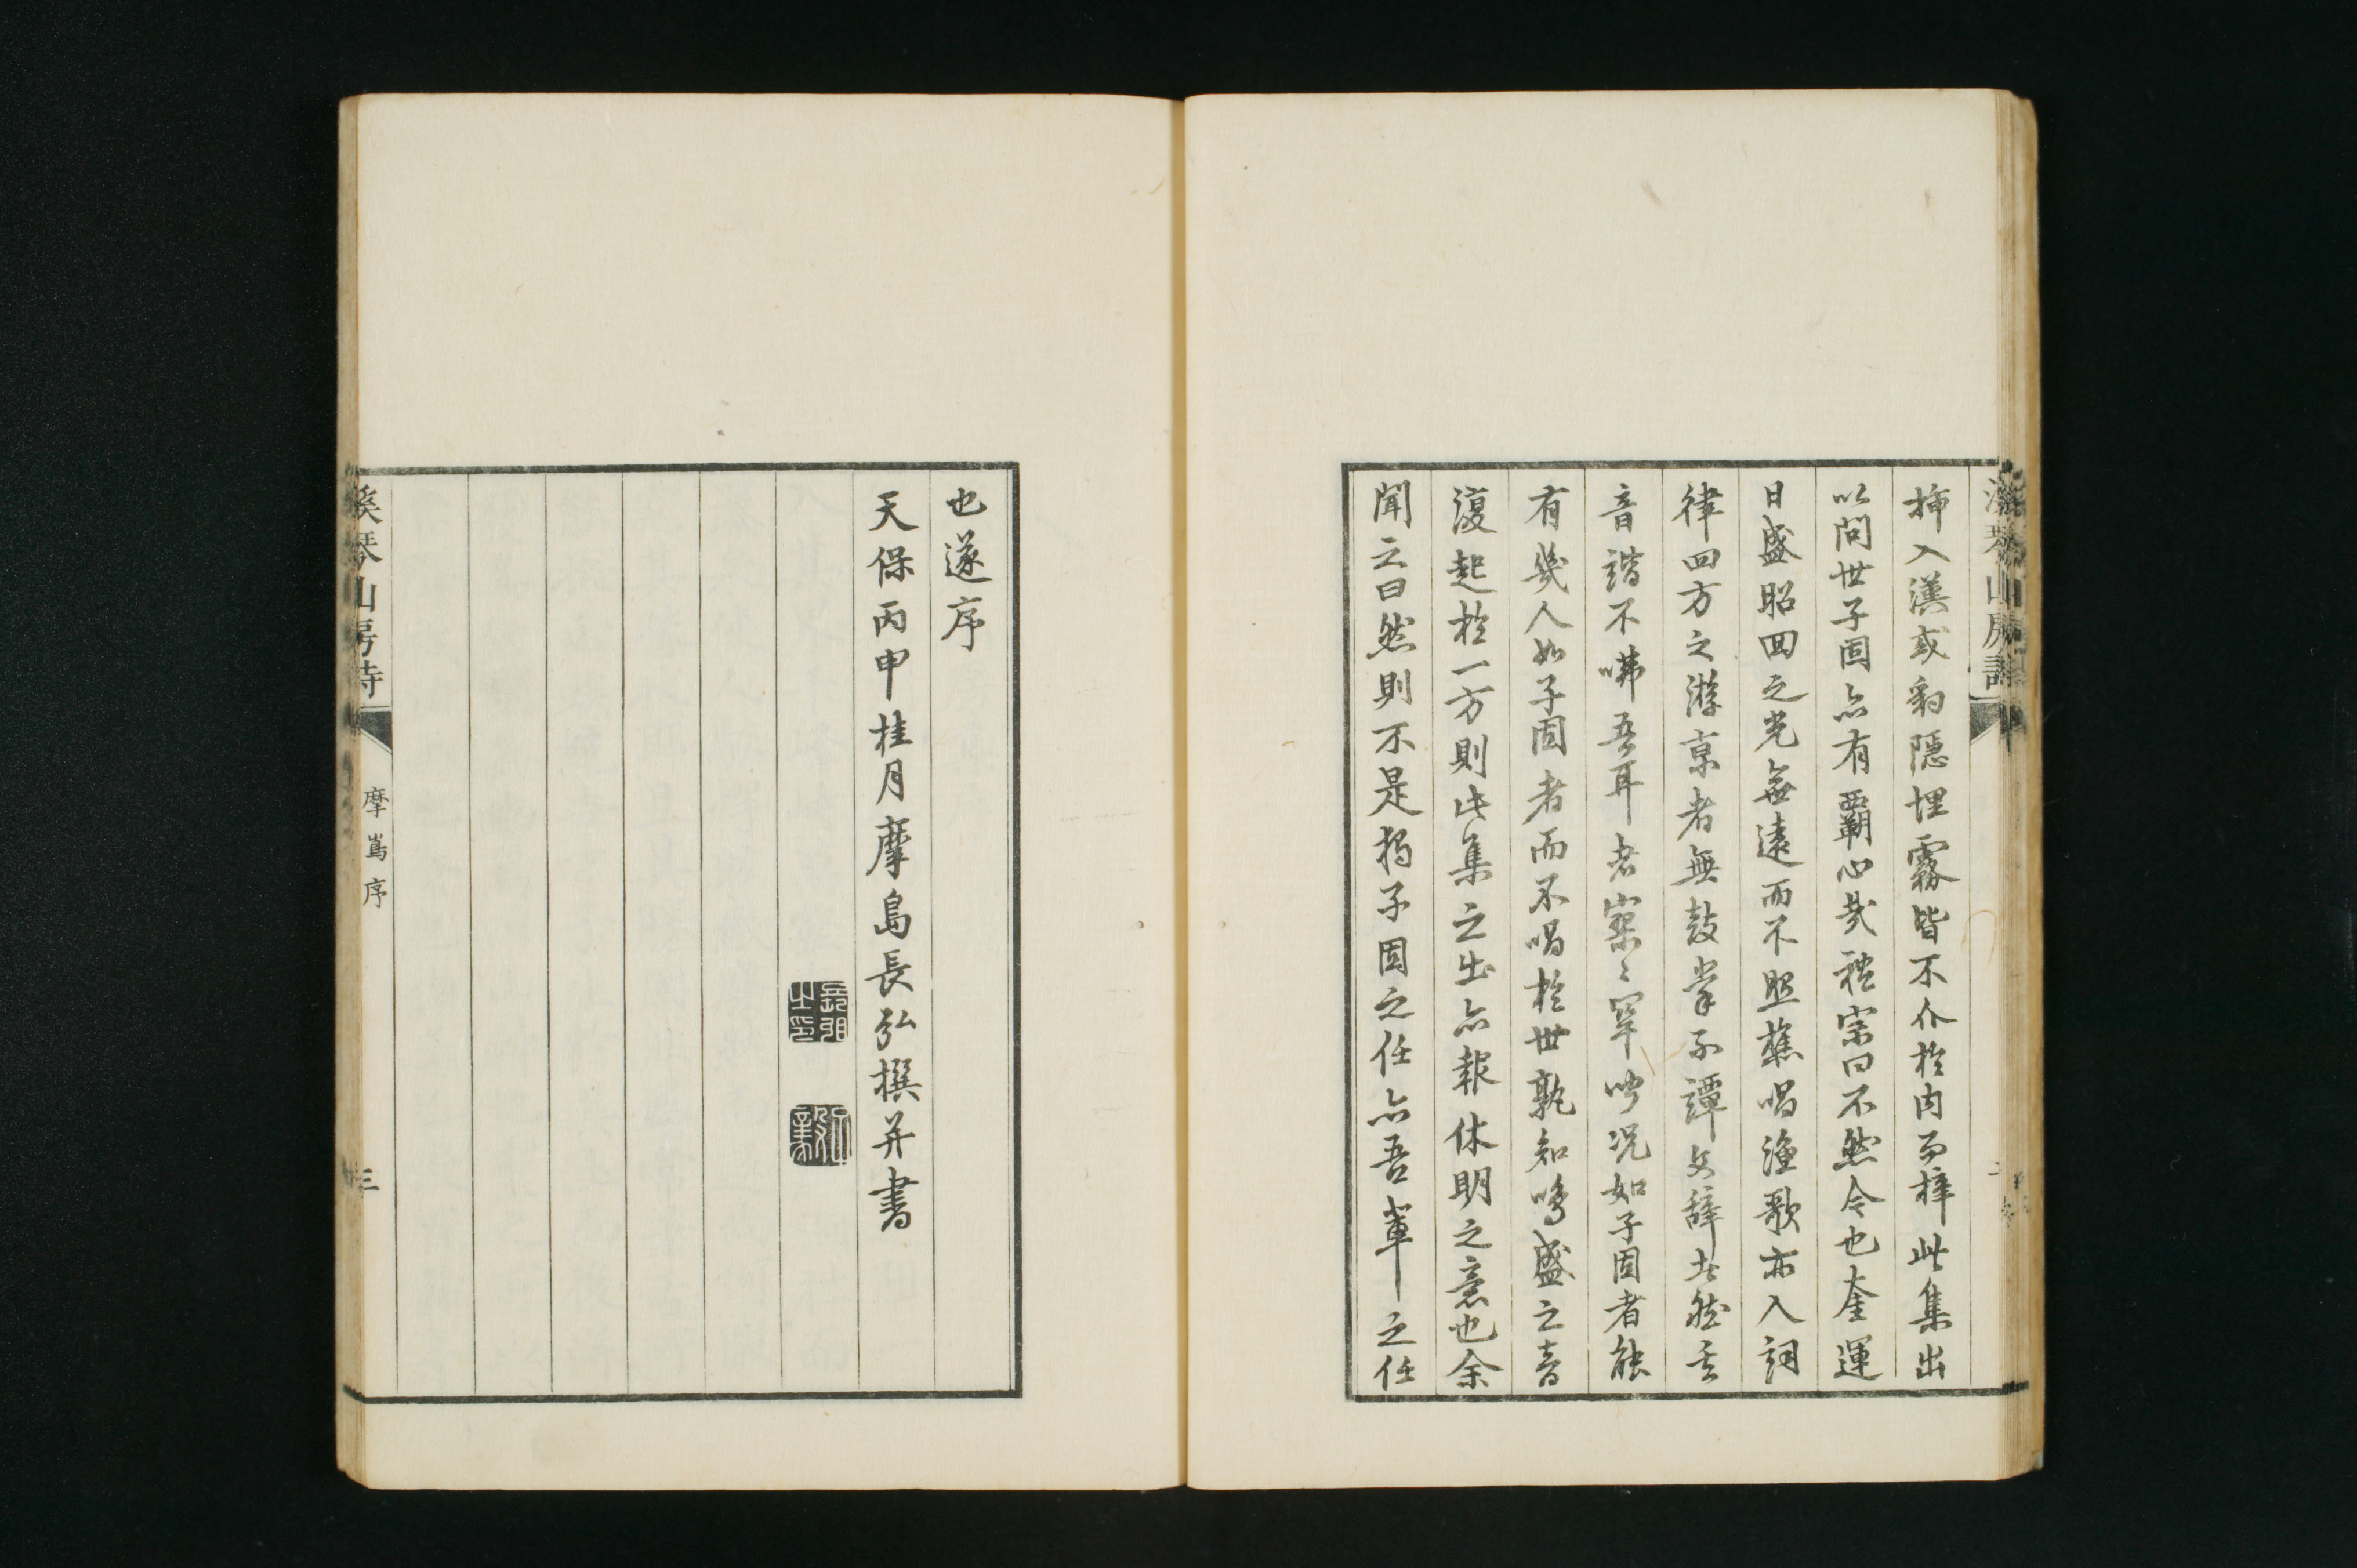 挿入漢或豹隠埋霧皆不介於内而梓此集出
以問世子固亦有覇心哉禮宗曰不然今也奎運
日盛昭回之光無遠而不照樵唱漁歌亦入詞
律四方之游京者無鼓掌不譚文辞者然其
音諧不咈吾耳者寥〻罕聞况如子固者能
有幾人如子固者而不唱於世孰知鳴盛之音
復起於一方則此集之出亦報休明之意也余
聞之曰然則不是揚子固之任亦吾輩之任
也遂序
天保丙申桂月摩島長弘撰并書
長弘之印
溪琴山房詩
摩嶌序
三